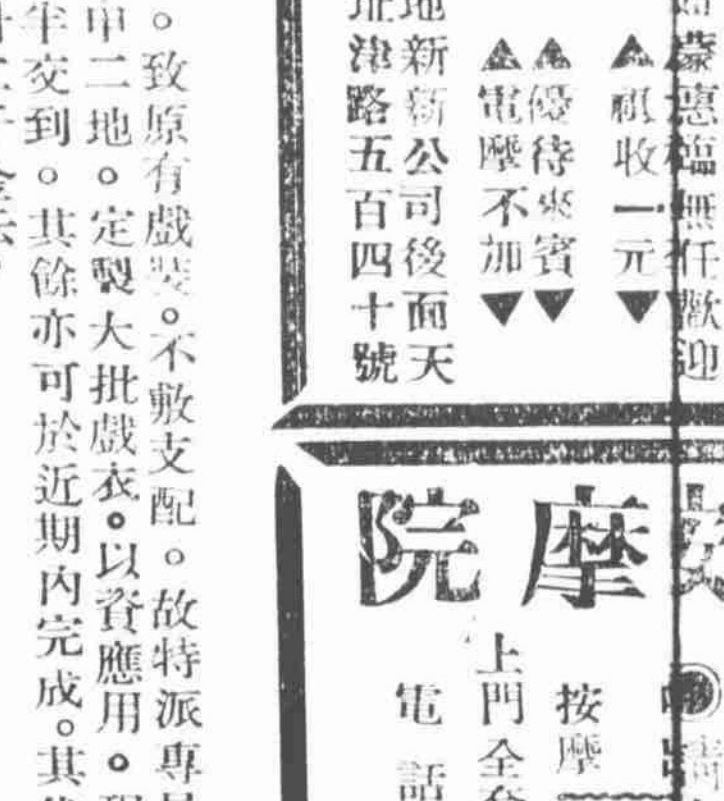 蒙惠臨無任歡迎
▲祗收一元▼
▲優待來賓▼
▲電摩不加▼
地新新公司後面天
址津路五百四十號
摩院
按摩
上門全
電話
。致原有戲裝。不敷支配。故特派專
甲二地。定製大批戲衣。以資應用。
年交到。其餘亦可於近期內完成。其